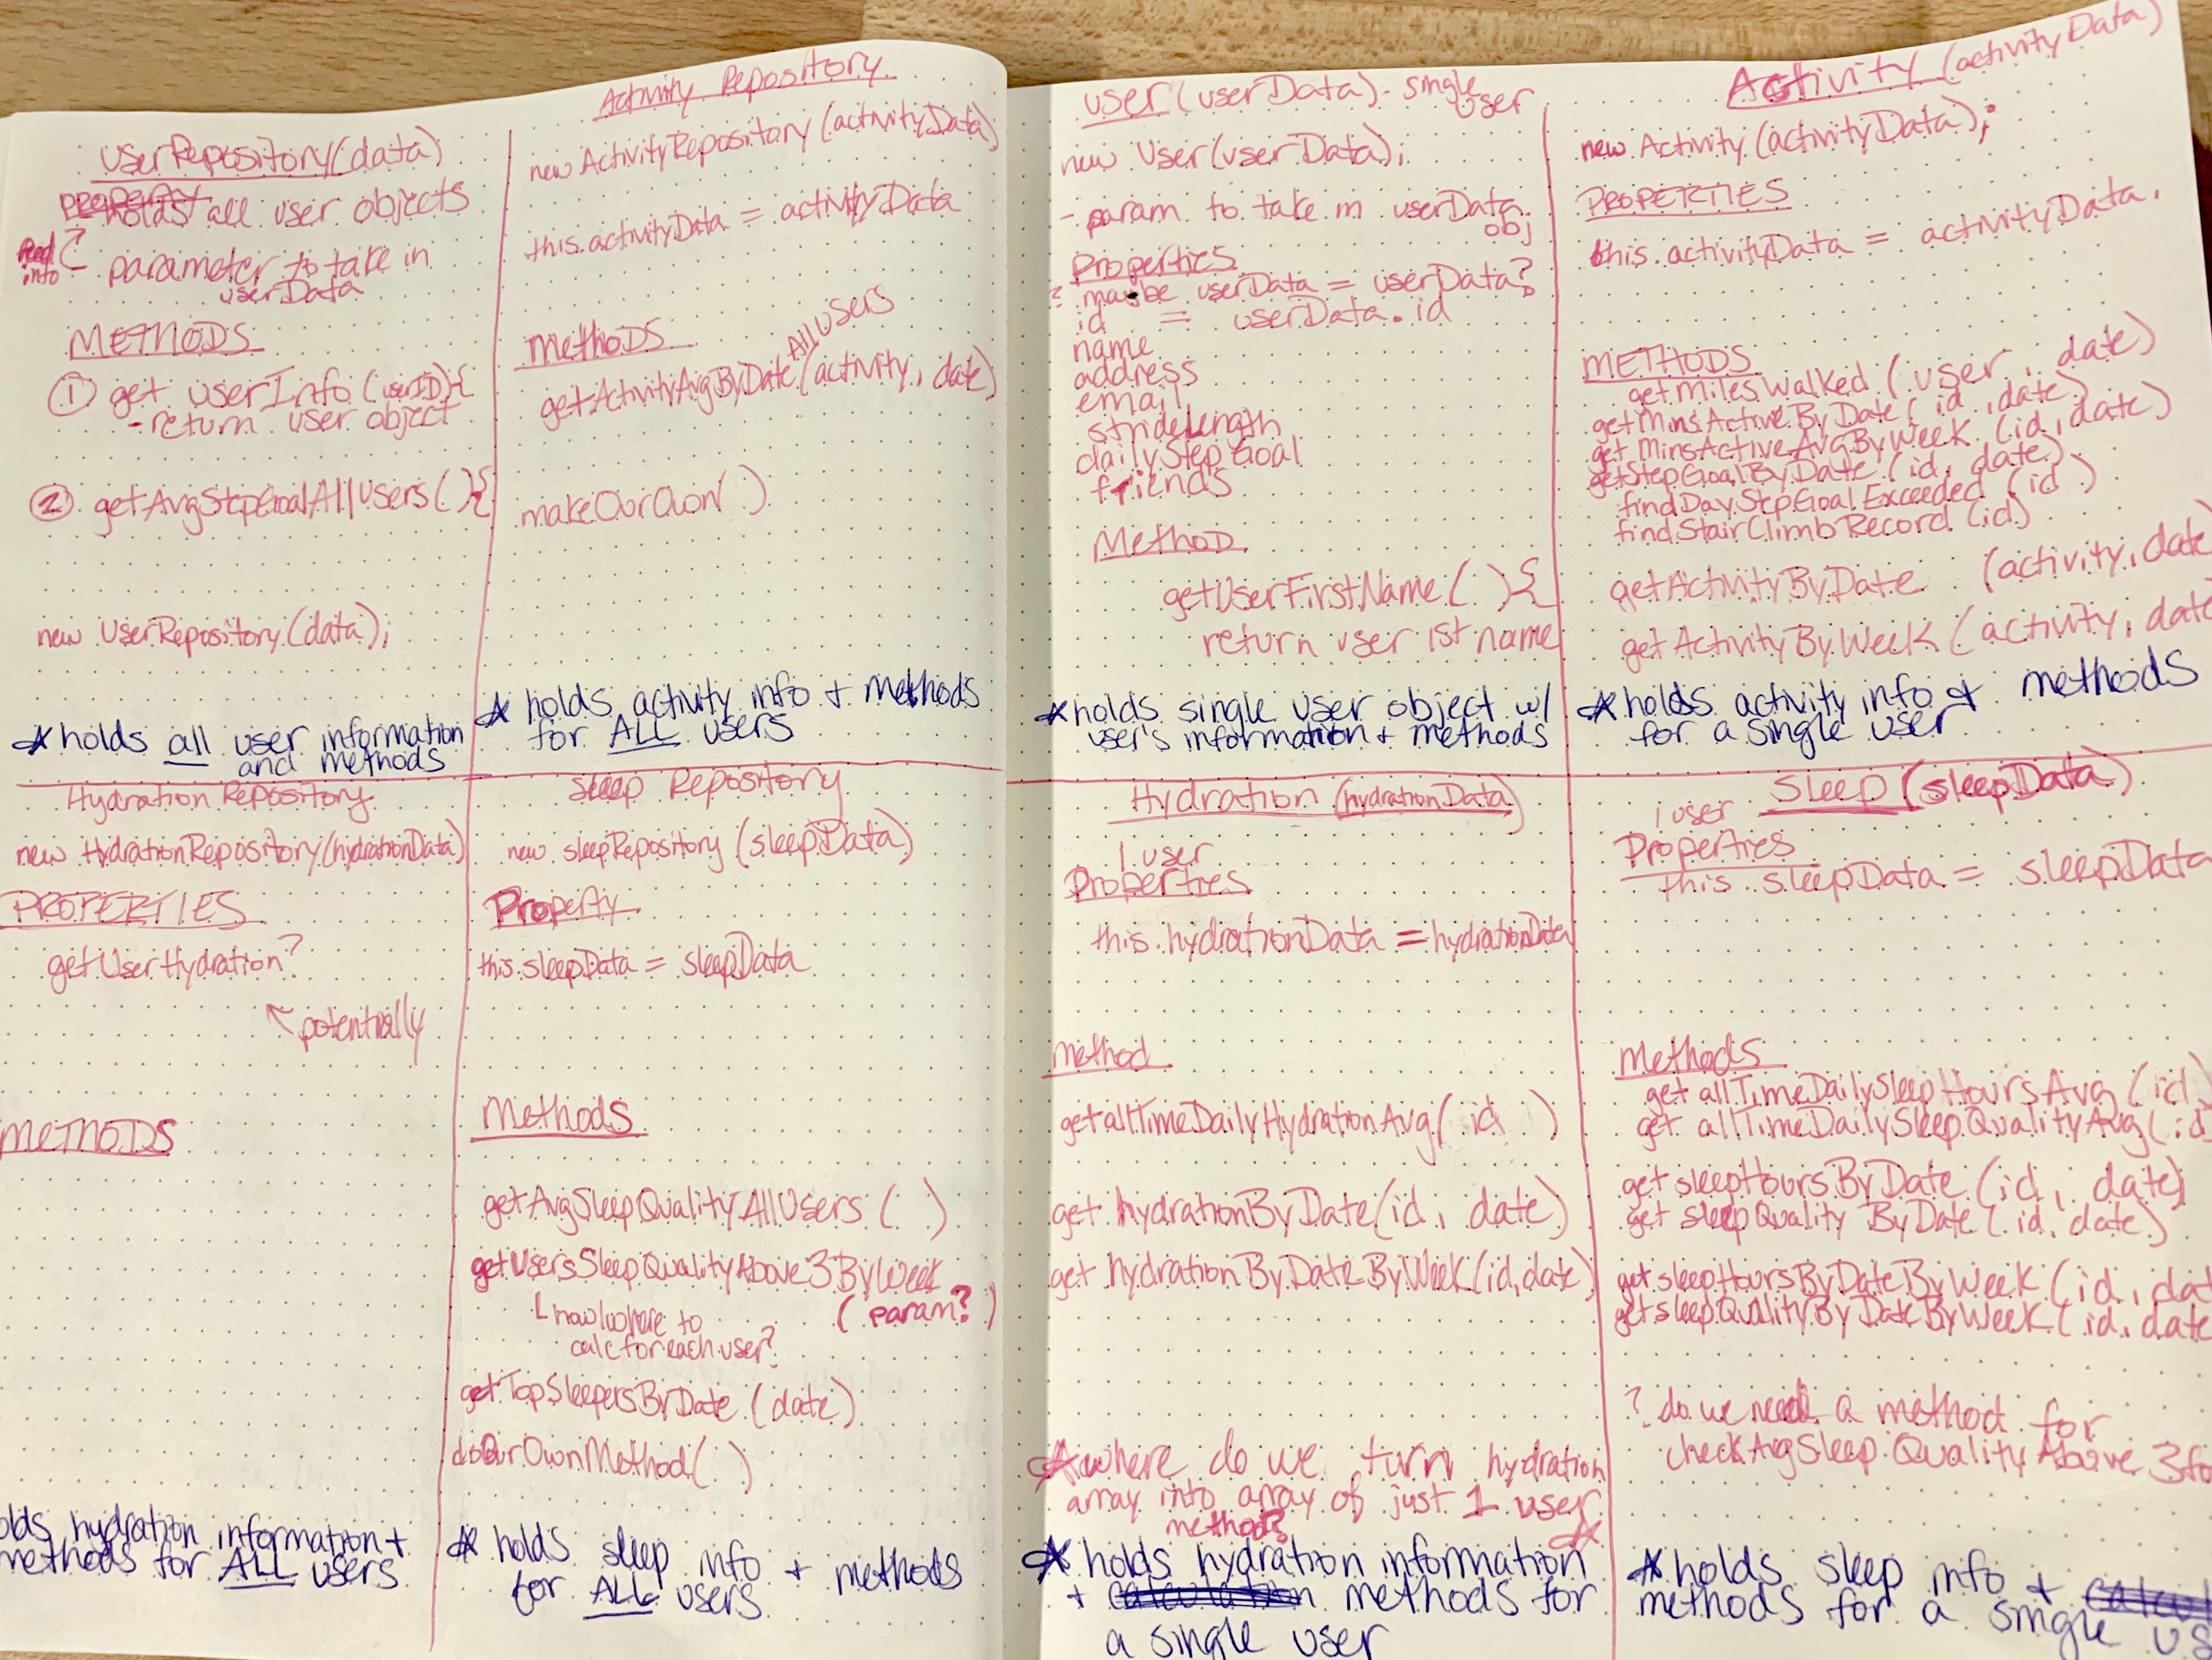 UserRepository(data)
holds all user objects
parameter to take in
userData
METHODS
① get userInfo (userID){
- return user object
② getAvgStepGoalAllUsers( ){
new UserRepository(data);
* holds all user information
and methods
Activity Repository
new ActivityRepository(activityData)
this.activityData = activityData
Methods
All users
getActivityAvgByDate(activity, date)
makeOurOwn( )
* holds activity info + methods
for ALL users
Hydration Repository
new HydrationRepository(hydrationData)
PROPERTIES
getUserHydration?
↖ potentially
METHODS
hydration information +
methods for ALL users
Sleep Repository
new sleepRepository(sleepData)
Property
this.sleepData = sleepData
Methods
getAvgSleepQualityAllUsers( )
getUsersSleepQualityAbove3ByWeek
(param?)
to
calc for each user?
getTopSleepersByDate(date)
doOurOwnMethod( )
* holds sleep info + methods
for ALL users
user(userData) - single
user
new User(userData);
- param to take in userData
obj
Properties
? maybe userData = userData?
id = userData.id
name
address
email
strideLength
dailyStepGoal
friends
Method
getUserFirstName( ){
return user 1st name
* holds single user object w/
user's information + methods
Activity (activityData)
new Activity(activityData);
PROPERTIES
this.activityData = activityData.
METHODS
getMilesWalked (user, date)
getMinsActiveByDate(id, date)
getMinsActiveAvgByWeek (id, date)
getStepGoalByDate (id, date)
findDayStepGoalExceeded (id)
findStairClimbRecord (id)
getActivityByDate (activity, date
getActivityByWeek (activity, date
* holds activity info & methods
for a single user
Hydration (hydrationData)
1 user
Properties
this.hydrationData = hydrationData
method
getallTimeDailyHydrationAvg( id )
get hydrationByDate(id, date)
get hydrationByDateByWeek(id, date)
* where do we turn hydration
array into array of just 1 user
method? *
* holds hydration information
+ methods for
a single user
Sleep (sleepData)
1 user
Properties
this.sleepData = sleepData
Methods
get allTimeDailySleepHoursAvg (id)
get allTimeDailySleepQualityAvg(id
get sleepHoursByDate (id, date)
get sleepQuality ByDate( id, date)
get sleepHoursByDateByWeek(id, dat
get sleepQualityByDateByWeek( id, date
? do we need a method for
checkAvgSleepQualityAbove3fo
* holds sleep info +
methods for a single us